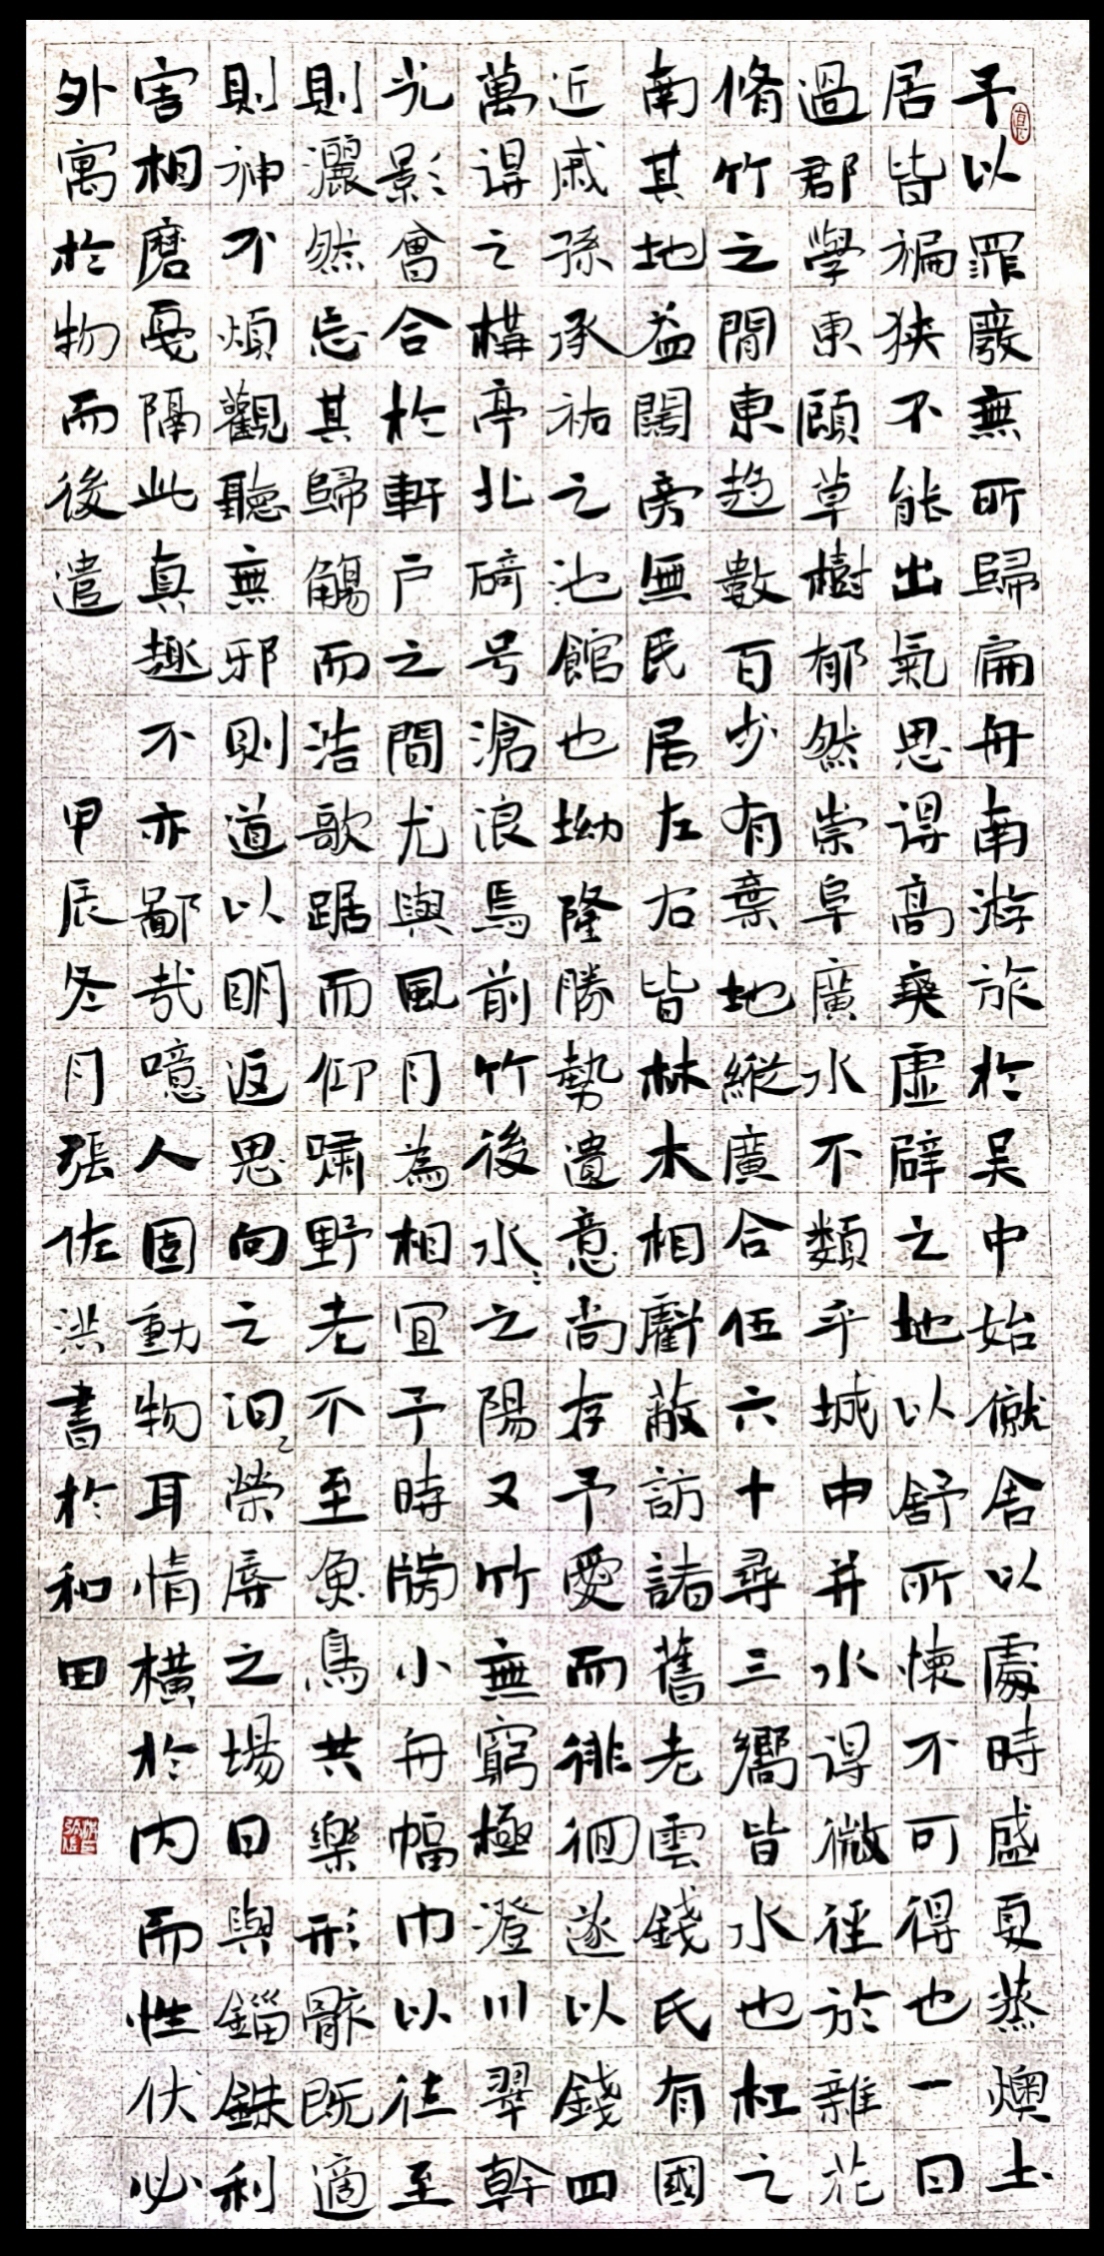 予以罪廢無所歸扁舟南游旅於吴中始僦舍以處時盛夏蒸燠土
居皆褊狹不能出氣思得高爽虚辟之地以舒所懷不可得也一日
過郡學東顧草樹郁然崇阜廣水不類乎城中并水得微徑於雜花
脩竹之間東趋數百步有棄地縱廣合伍六十尋三嚮皆水也杠之
南其地益闊旁無民居左右皆林木相虧蔽訪諸舊老雲錢氏有國
近戚孫承祐之池館也坳隆勝勢遺意尚存予愛而徘徊遂以錢四
萬得之構亭北碕号滄浪焉前竹後水々之陽又竹無窮極澄川翠幹
光影會合於軒户之間尤與風月為相宜予時牓小舟幅巾以往至
則灑然忘其歸觴而浩歌踞而仰嘯野老不至魚鳥共樂形骸既適
則神不煩觀聽無邪則道以明返思向之汩々榮辱之場日與錙銖利
害相磨戛隔此真趣不亦鄙哉噫人固動物耳情橫於内而性伏必
外寓於物而後遣 甲辰冬月張佐洪書於和田